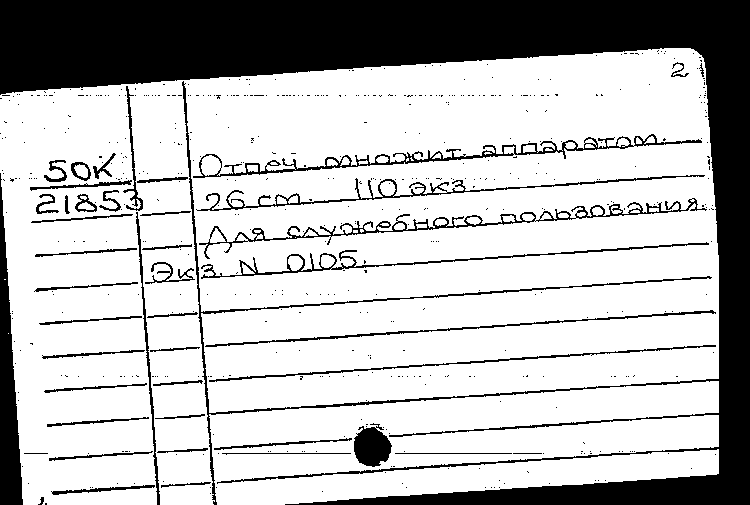 2
50К Отпеч. множит. аппаратом.
21853 26 см. 110 экз.
Для служебного пользования.
Экз. N 0105.